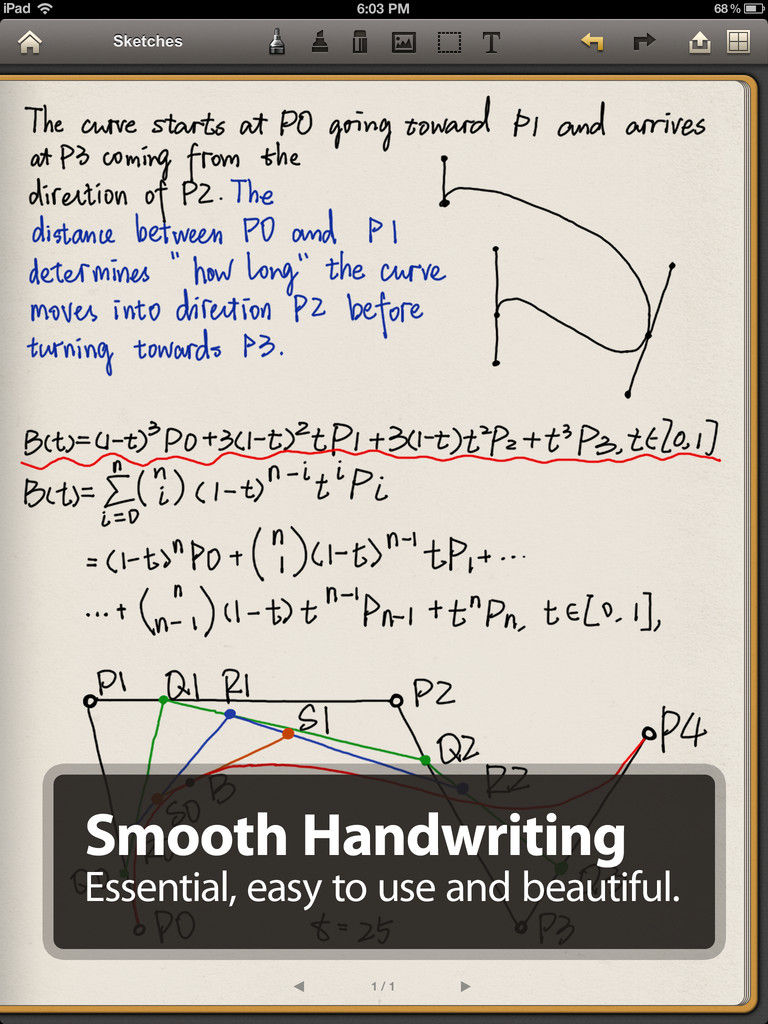 iPad 6:03 PM 68%
Sketches T
The curve starts at P0 going toward P1 and arrives
at P3 coming from the
direction of P2. The
distance between P0 and P1
determines "how long" the curve
moves into direction P2 before
turning towards P3.
B(t)=(1-t)³P0+3(1-t)²tP1+3(1-t)t²P₂+t³P₃, t∈[0,1]
B(t)=∑ⁿᵢ₌₀(ⁿᵢ)(1-t)ⁿ⁻ⁱtⁱPi
=(1-t)ⁿP0+(ⁿ₁)(1-t)ⁿ⁻¹tP₁+...
...+(ⁿₙ₋₁)(1-t)tⁿ⁻¹Pₙ₋₁+tⁿPₙ, t∈[0,1],
P1 Q1 R1 P2
S1 P4
Q2
R2
B
S0
Smooth Handwriting
Essential, easy to use and beautiful.
P0 t=25 P3
1/1